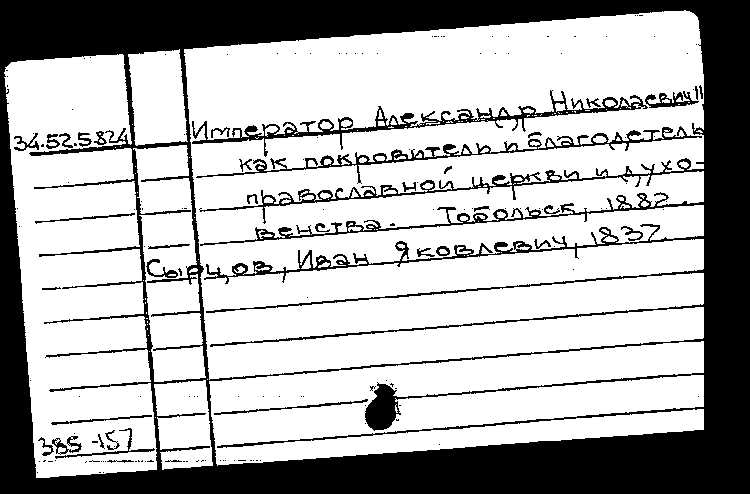 34.52.5.824 Император Александр Николаевич II
как покровитель и благодетель
православной церкви и духо-
венства. Тобольск, 1882.
Сырцов, Иван Яковлевич, 1837
385-157